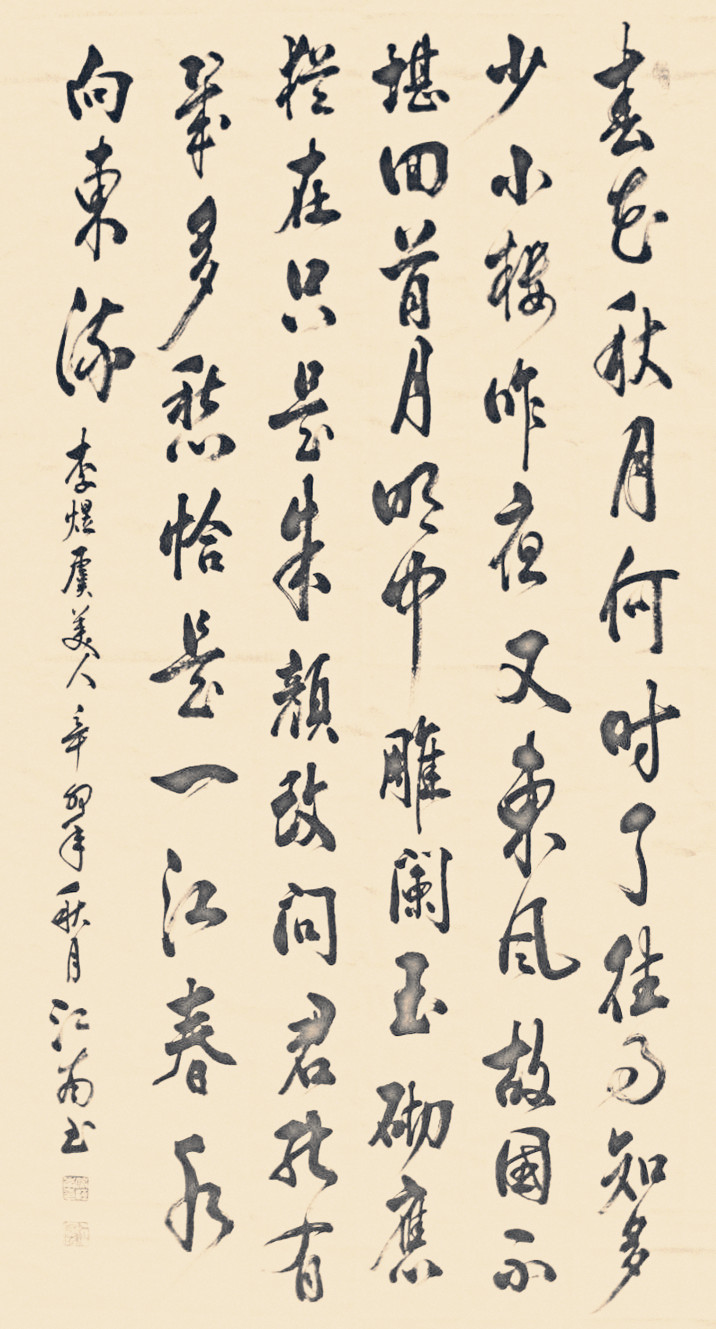 春花秋月何时了往事知多
少小楼昨夜又東风故國不
堪回首月明中雕阑玉砌應
猶在只是朱顔改问君能有
幾多愁恰是一江春水
向東流
李煜虞美人辛卯年秋月江南书